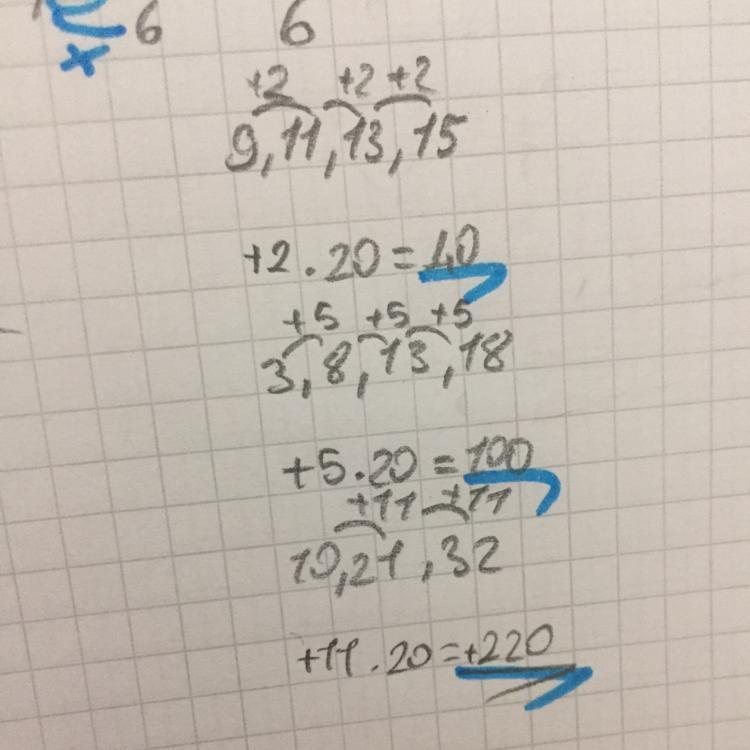 6 6
+2 +2 +2
9, 11, 13, 15
+2 . 20 = 40
+5 +5 +5
3, 8, 13, 18
+5 . 20 = 100
+11 +11
10, 21, 32
+11 . 20 = +220